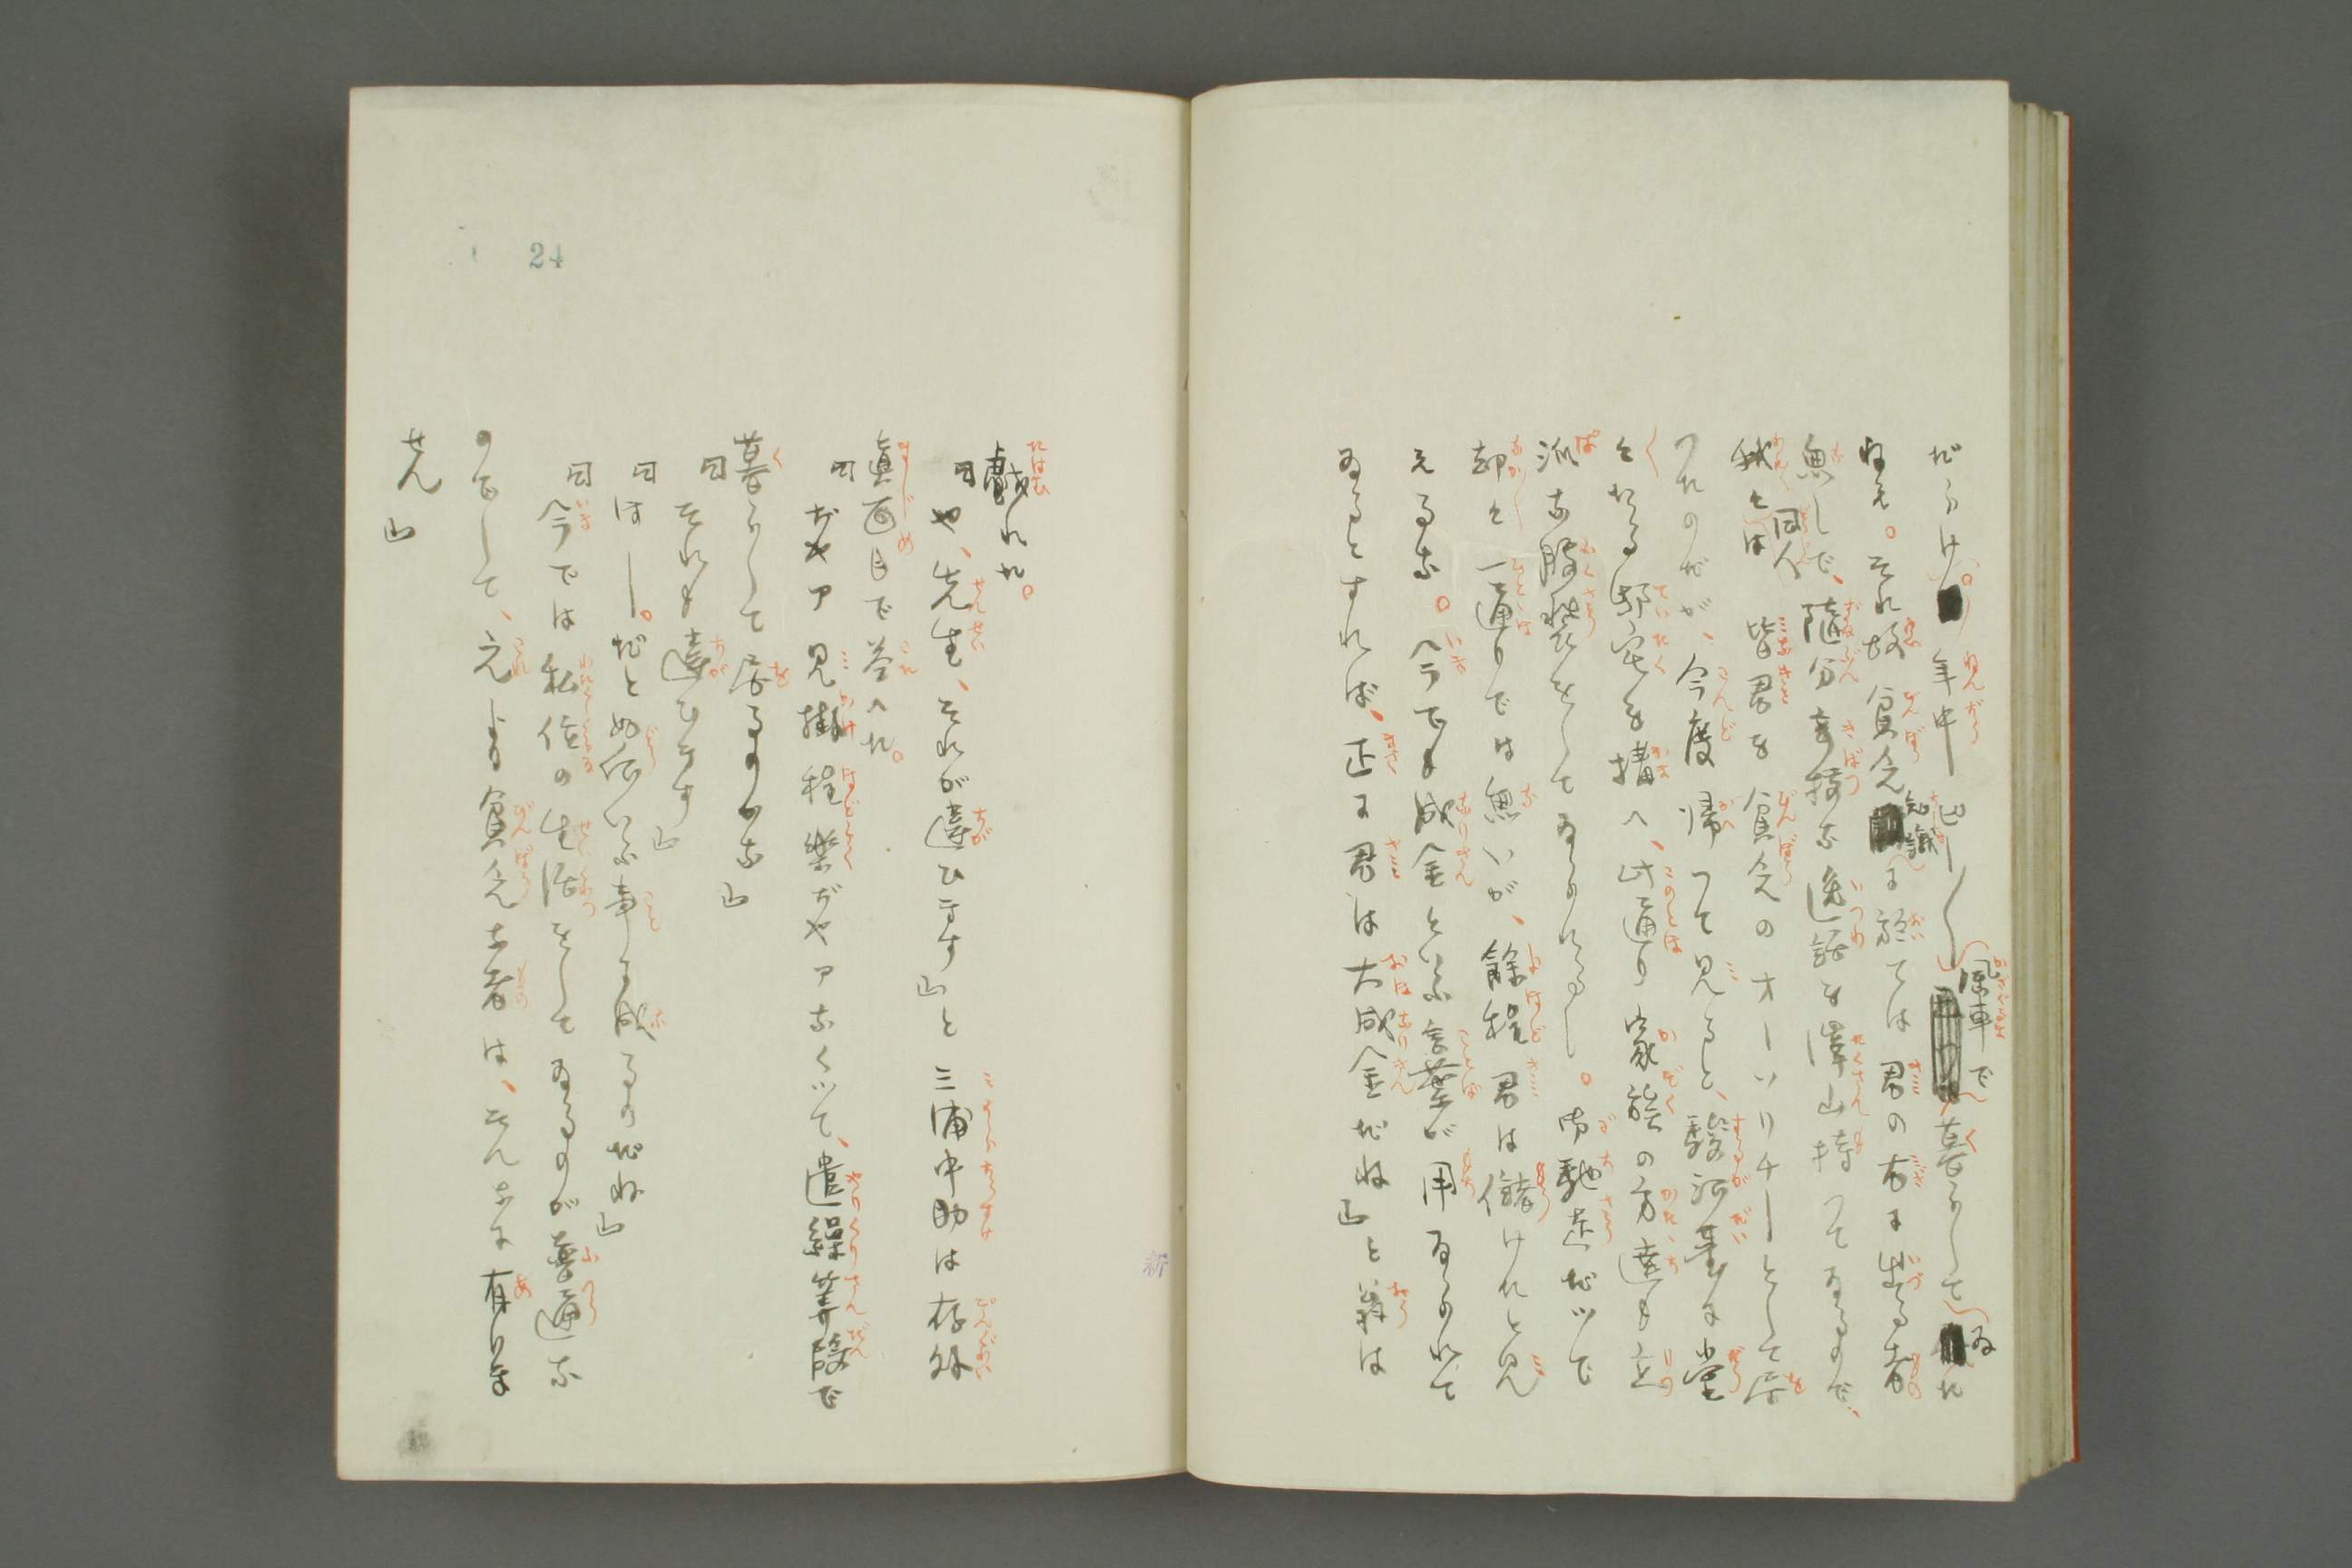 だらけ。年中ピー〳〵風車で暮らしてゐた
ねえ。それ故貧乏知識に於ては君の右に出る者
無しで、隨分奇抜な逸話を澤山持つてゐるので、
我々同人は皆君を貧乏のオーソリチーとして居
つたのだが、今度帰つて見ると、駿河臺に堂
々たる邸宅を構へ、此通り家族の方達も立
派な服装をしてゐられるし。御馳走だツで
却々一通りでは無いが、餘程君は儲けれと見
えるな。今でも成金といふ言葉が用ゐられて
ゐるとすれば、正に君は大成金だね」と翁は
戯れた。
「や、先生、それが違ひます」と三浦中助は存外
眞面目で答へた。
「ぢやア見掛程樂ぢやアなくツて、遣繰算段で
暮らして居るのかな」
「それも違ひます」
「はー。だと如何いふ事に成るのだね」
「今では私位の生活をしてゐるのが普通な
のでして、之より貧乏な者は、そんなに有りま
せん」
24
新